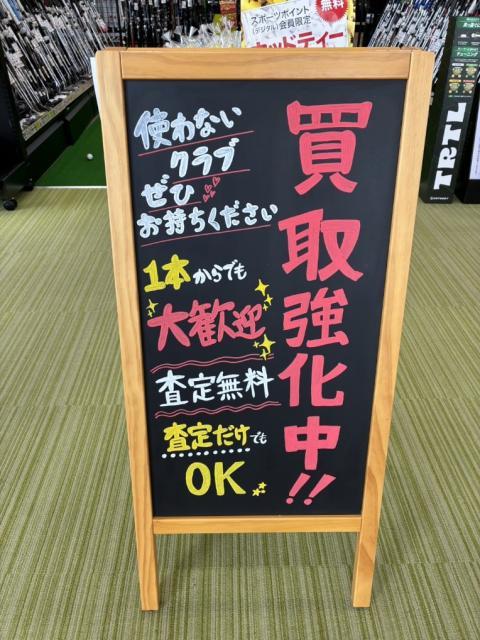 スポーツポイント
(デジタル)会員限定
無料
ウッドティー
買取強化中!!
使わない
クラブ
ぜひ
お持ちください
1本からでも
大歓迎
査定無料
査定だけでも
OK
TRTL